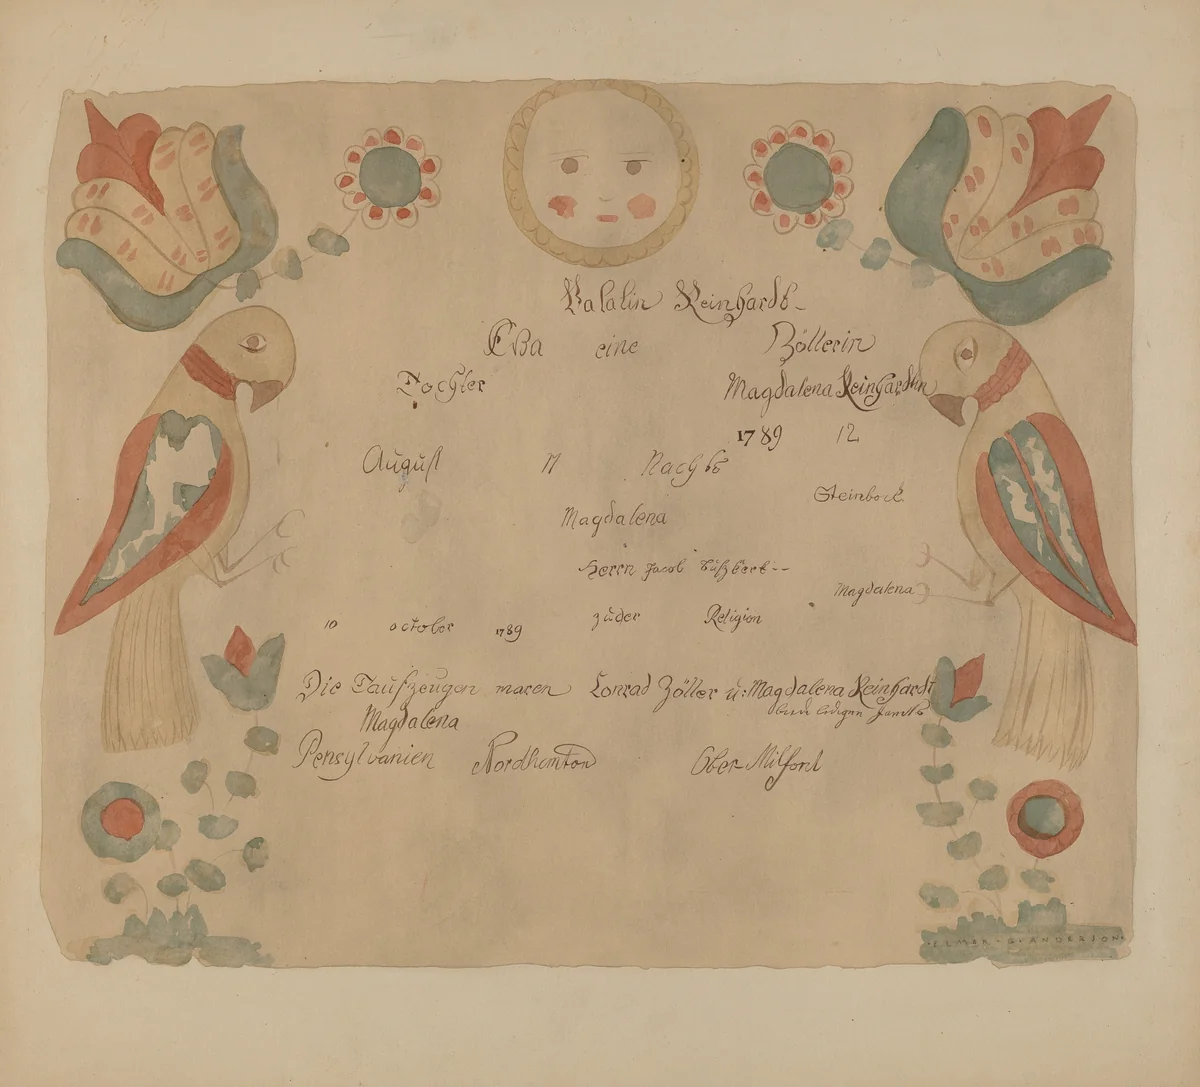 Valatin Reinhardt
Eva eine Zöllerin
Tochter Magdalena Reinhardtin
1789 12
August 17 Nachts
Steinbock
Magdalena
Herrn Jacob
Magdalena
zuder Religion
10 october 1789
Die Taufzeugen waren Conrad Zöller u: Magdalena Reinhardt
Magdalena
Pensylvanien Nordhamton Ober Milford
ELMER G ANDERSON